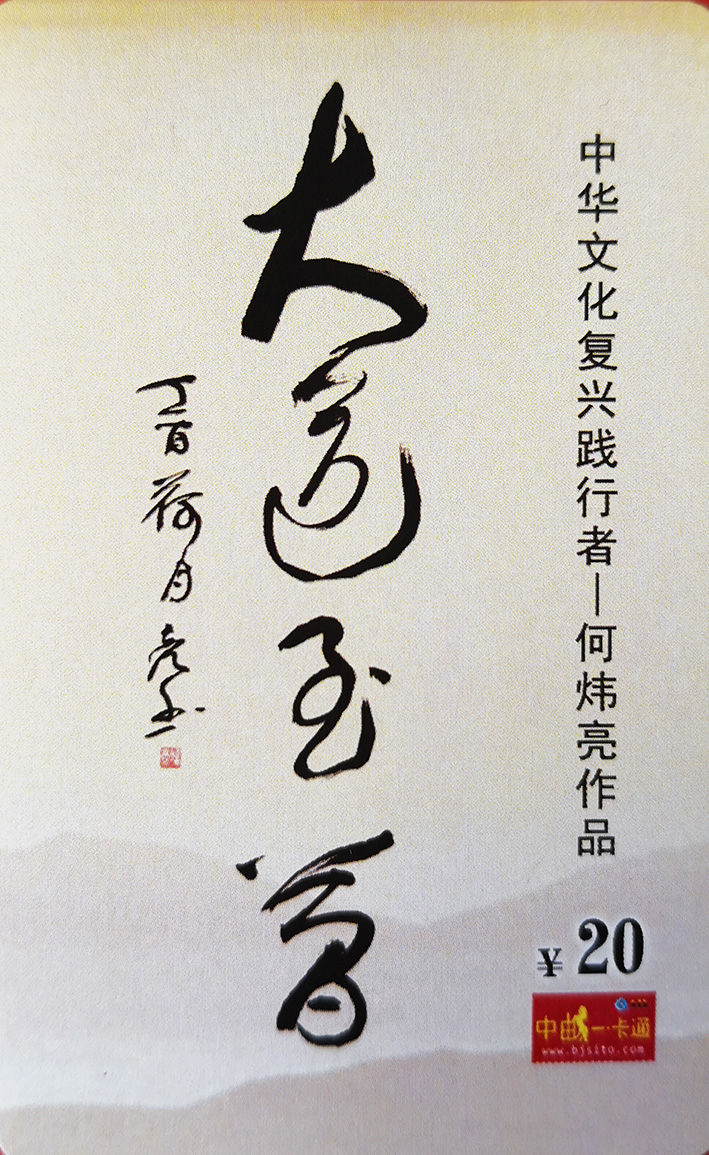 中华文化复兴践行者—何炜亮作品
大道至简
丁酉荷月亮书
¥20
中曲一卡通
www.bjsito.com